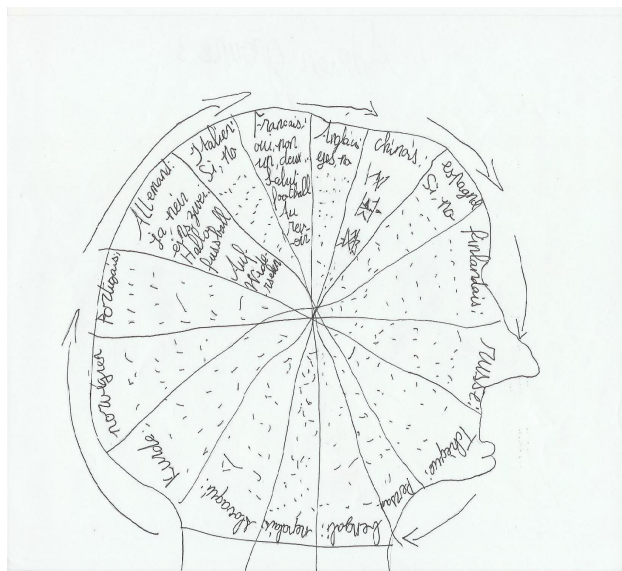 Allemand:
ja nein
eins zwei
Hallo
fussball
Auf
Wiede
rsehen
Italien:
Si, no
Français:
oui, non
un, deux
Salut
football
Au
rev
oir
Anglais:
yes no
chinois:
espagnol
Si no
finlandais:
russe:
Tchèque:
Persan
bengali:
népalais:
slovaque:
Kurde
norvégien
Portugais: